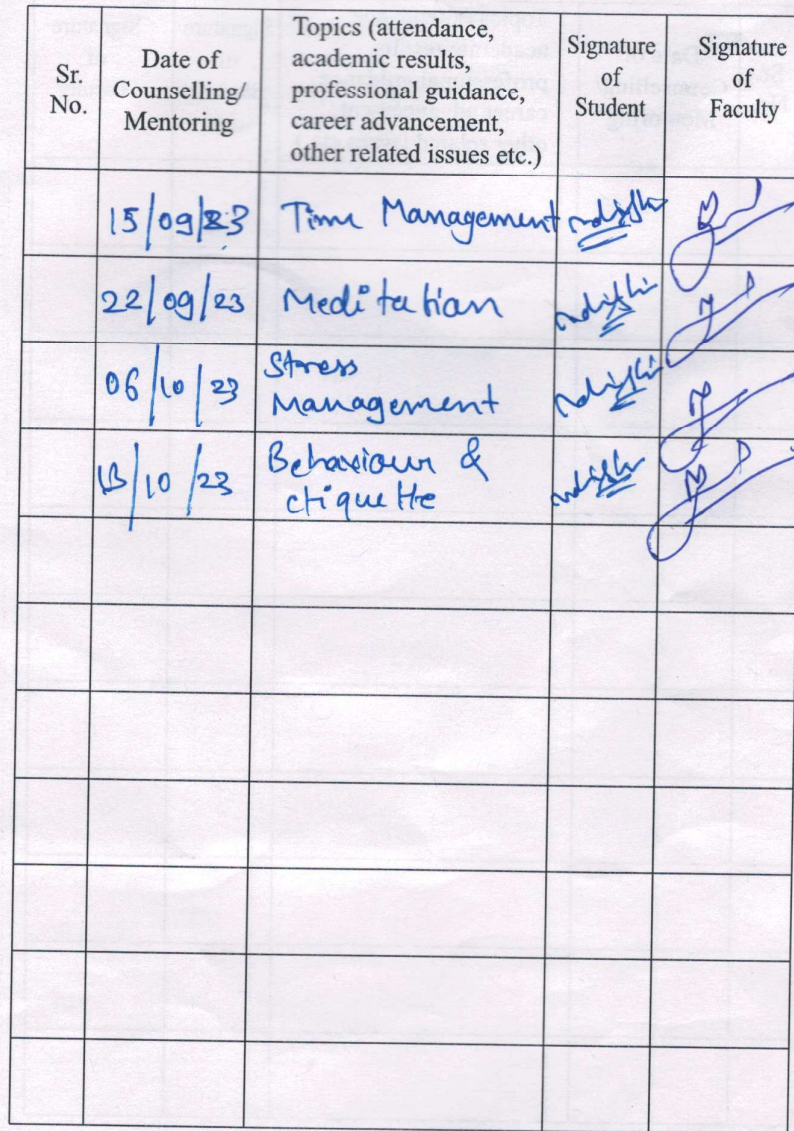 Sr. No.
Date of Counselling/ Mentoring
Topics (attendance, academic results, professional guidance, career advancement, other related issues etc.)
Signature of Student
Signature of Faculty
15/09/23 Time Management
22/09/23 Meditation
06/10/23 Stress Management
13/10/23 Behaviour & etiquette